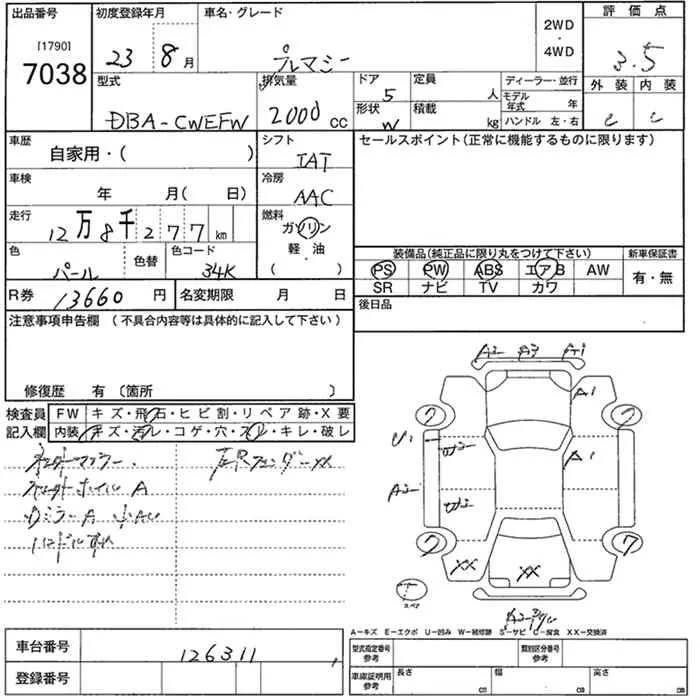 出品番号 初度登録年月 車名・グレード 2WD・4WD 評価点
[1790]
7038 23 8月 プレマシー 3.5
型式 排気量 ドア 5 定員 人 ディーラー・並行 外装 内装
DBA-CWEFW 2000cc 形状 W 積載 kg モデル年式 年 C C
ハンドル 左・右
車歴 自家用・( ) シフト セールスポイント(正常に機能するものに限ります)
車検 年 月( 日) 冷房 AAC
走行 12万8千277km 燃料 ガソリン
軽・油
( )
色 パール 色替 色コード 34K
装備品(純正品に限り丸をつけて下さい) 新車保証書
PS PW ABS エアB AW 有・無
SR ナビ TV カワ
R券 13660円 名変期限 月 日 後日品
注意事項申告欄 (不具合内容等は具体的に記入して下さい)
修復歴 有 〔箇所 〕
検査員 FW キズ・飛石・ヒビ割・リペア跡・X要
記入欄 内装 キズ・汚レ・コゲ・穴・スレ・キレ・破レ
A2 A3 A1
A1
7
U1
A1
A2
7 7
XX XX
スペア
A−キズ E−エクボ U−凹み W−補修跡 S−サビ C−腐食 XX−交換済
車台番号 126311
登録番号
型式指定番号 参考 類別区分番号 参考
車庫証明用 参考 長さ cm 幅 cm 高さ cm